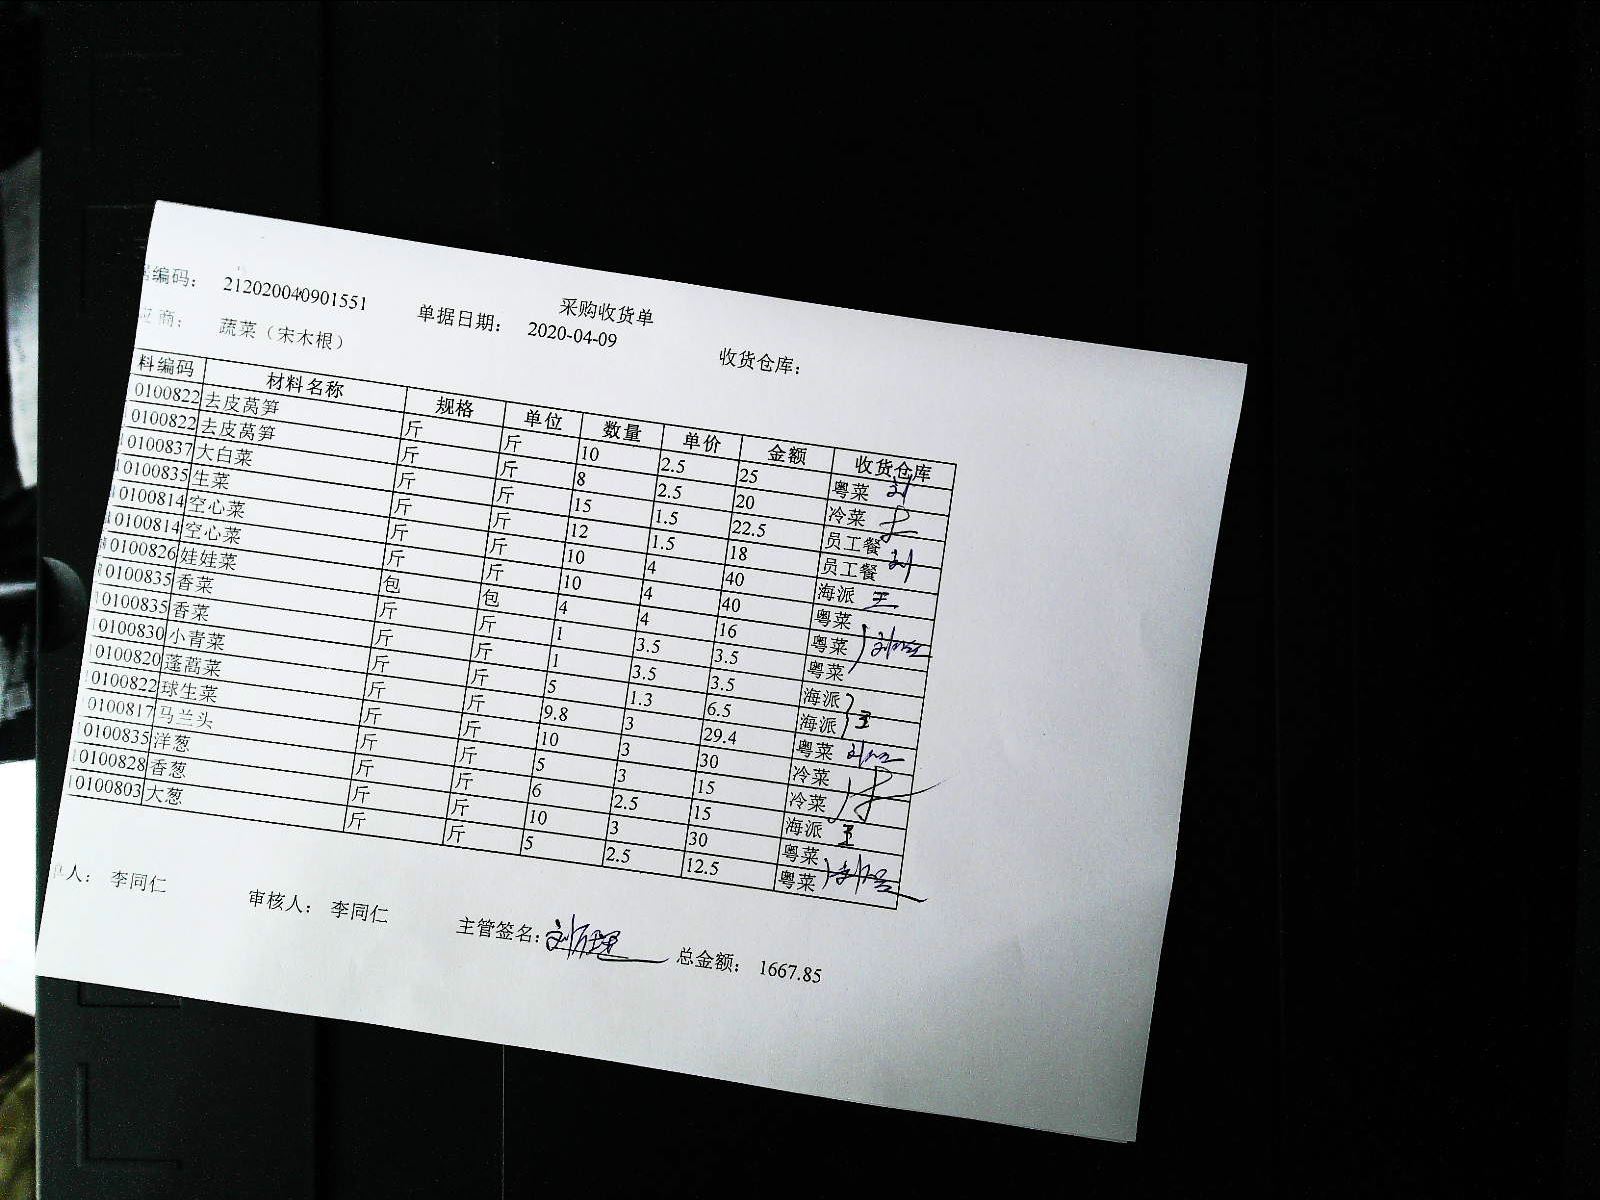 采购收货单
编码： 212020040901551 单据日期： 2020-04-09 收货仓库：
商： 蔬菜（宋木根）
料编码 材料名称 规格 单位 数量 单价 金额 收货仓库
0100822 去皮莴笋 斤 斤 10 2.5 25 粤菜 刘
0100822 去皮莴笋 斤 斤 8 2.5 20 冷菜
0100837 大白菜 斤 斤 15 1.5 22.5 员工餐
0100835 生菜 斤 斤 12 1.5 18 员工餐 刘
0100814 空心菜 斤 斤 10 4 40 海派 王
0100814 空心菜 斤 斤 10 4 40 粤菜
0100826 娃娃菜 包 包 4 4 16 粤菜
0100835 香菜 斤 斤 1 3.5 3.5 粤菜
0100835 香菜 斤 斤 1 3.5 3.5 海派
0100830 小青菜 斤 斤 5 1.3 6.5 海派 王
0100820 蓬蒿菜 斤 斤 9.8 3 29.4 粤菜
0100822 球生菜 斤 斤 10 3 30 冷菜
0100817 马兰头 斤 斤 5 3 15 冷菜
0100835 洋葱 斤 斤 6 2.5 15 海派 王
0100828 香葱 斤 斤 10 3 30 粤菜
0100803 大葱 斤 斤 5 2.5 12.5 粤菜
人： 李同仁 审核人： 李同仁 主管签名： 总金额： 1667.85